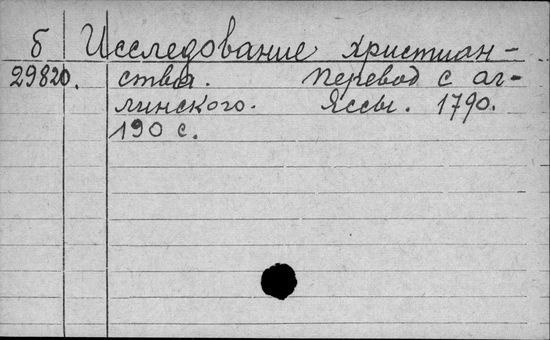 б Исследование христиан-
29820. ства. Перевод с аг-
линского. Яссы. 1790.
190 с.